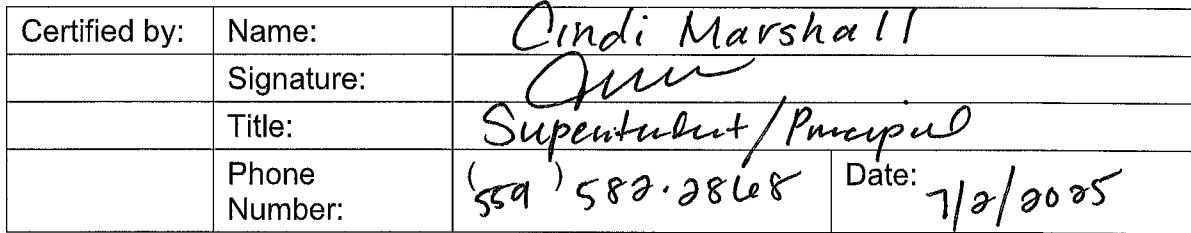 Certified by: Name: Cindi Marshall
Signature:
Title: Superintendent/Principal
Phone Number: (559) 582.2868 Date: 7/2/2025